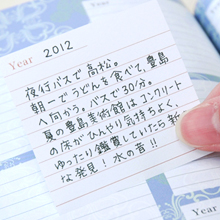 2012
Year
Year
夜行バスで高松。
朝一でうどんを食べて、豊島
へ向かう。バスで30分。
夏の豊島美術館はコンクリート
の床がひんやり気持ちよく、
ゆったり鑑賞していたら新た
な発見！水の音!!